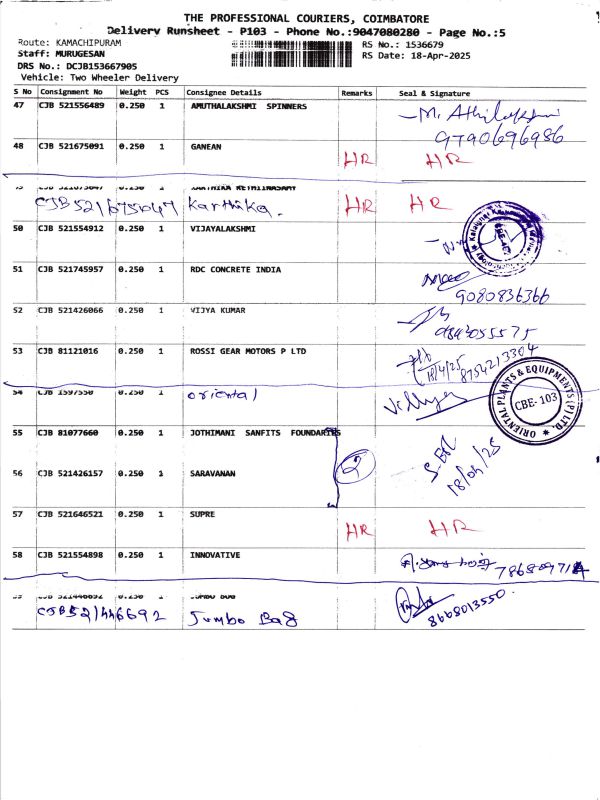 THE PROFESSIONAL COURIERS, COIMBATORE
Delivery Runsheet - P103 - Phone No.:9047080280 - Page No.:5
Route: KAMACHIPURAM
RS No.: 1536679
Staff: MURUGESAN
RS Date: 18-Apr-2025
DRS No.: DCJB153667905
Vehicle: Two Wheeler Delivery
S No Consignment No Weight PCS Consignee Details Remarks Seal & Signature
47 CJB 521556489 0.250 1 AMUTHALAKSHMI SPINNERS
9790696986
48 CJB 521675091 0.250 1 GANEAN HR HR
CJB521675047 Karthika. HR HR
50 CJB 521554912 0.250 1 VIJAYALAKSHMI
51 CJB 521745957 0.250 1 RDC CONCRETE INDIA
9080836366
52 CJB 521426066 0.250 1 VIJYA KUMAR
9843055575
53 CJB 81121016 0.250 1 ROSSI GEAR MOTORS P LTD
18/4/25 8754213304
54 CJB 1597550 0.250 1 oriental
ORIENTAL PLANTS & EQUIPMENTS (P) LTD.
CBE-103
55 CJB 81077660 0.250 1 JOTHIMANI SANFITS FOUNDARIES
2
18/04/25
56 CJB 521426157 0.250 1 SARAVANAN
57 CJB 521646521 0.250 1 SUPRE HR HR
58 CJB 521554898 0.250 1 INNOVATIVE
CJB521446692 Jumbo Bag
8668013550